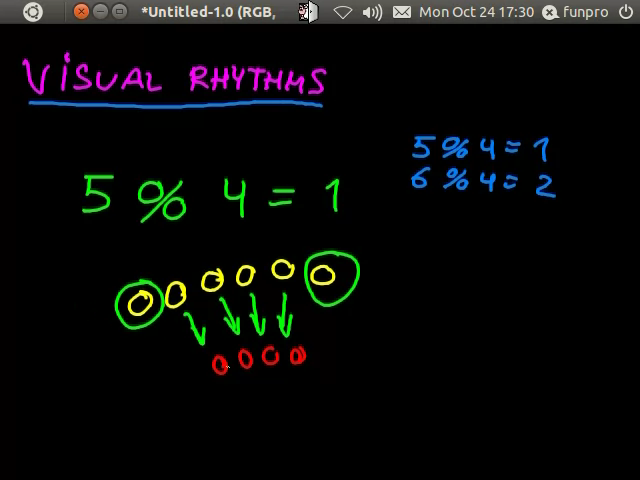 *Untitled-1.0 (RGB, Mon Oct 24 17:30 funpro
VISUAL RHYTHMS
5 % 4 = 1
6 % 4 = 2
5 % 4 = 1